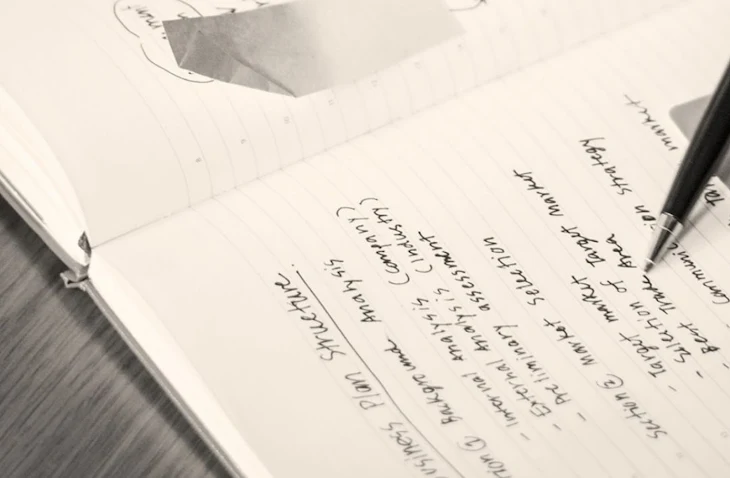 usiness Plan Structure.
tion ① Background Analysis
- Internal analysis (Company)
- External analysis (Industry)
- Preliminary assessment
Section ② Market Selection
- Target market
- Selection of Target Market
- Best Trade Area
Communic ion strategy
Ta market